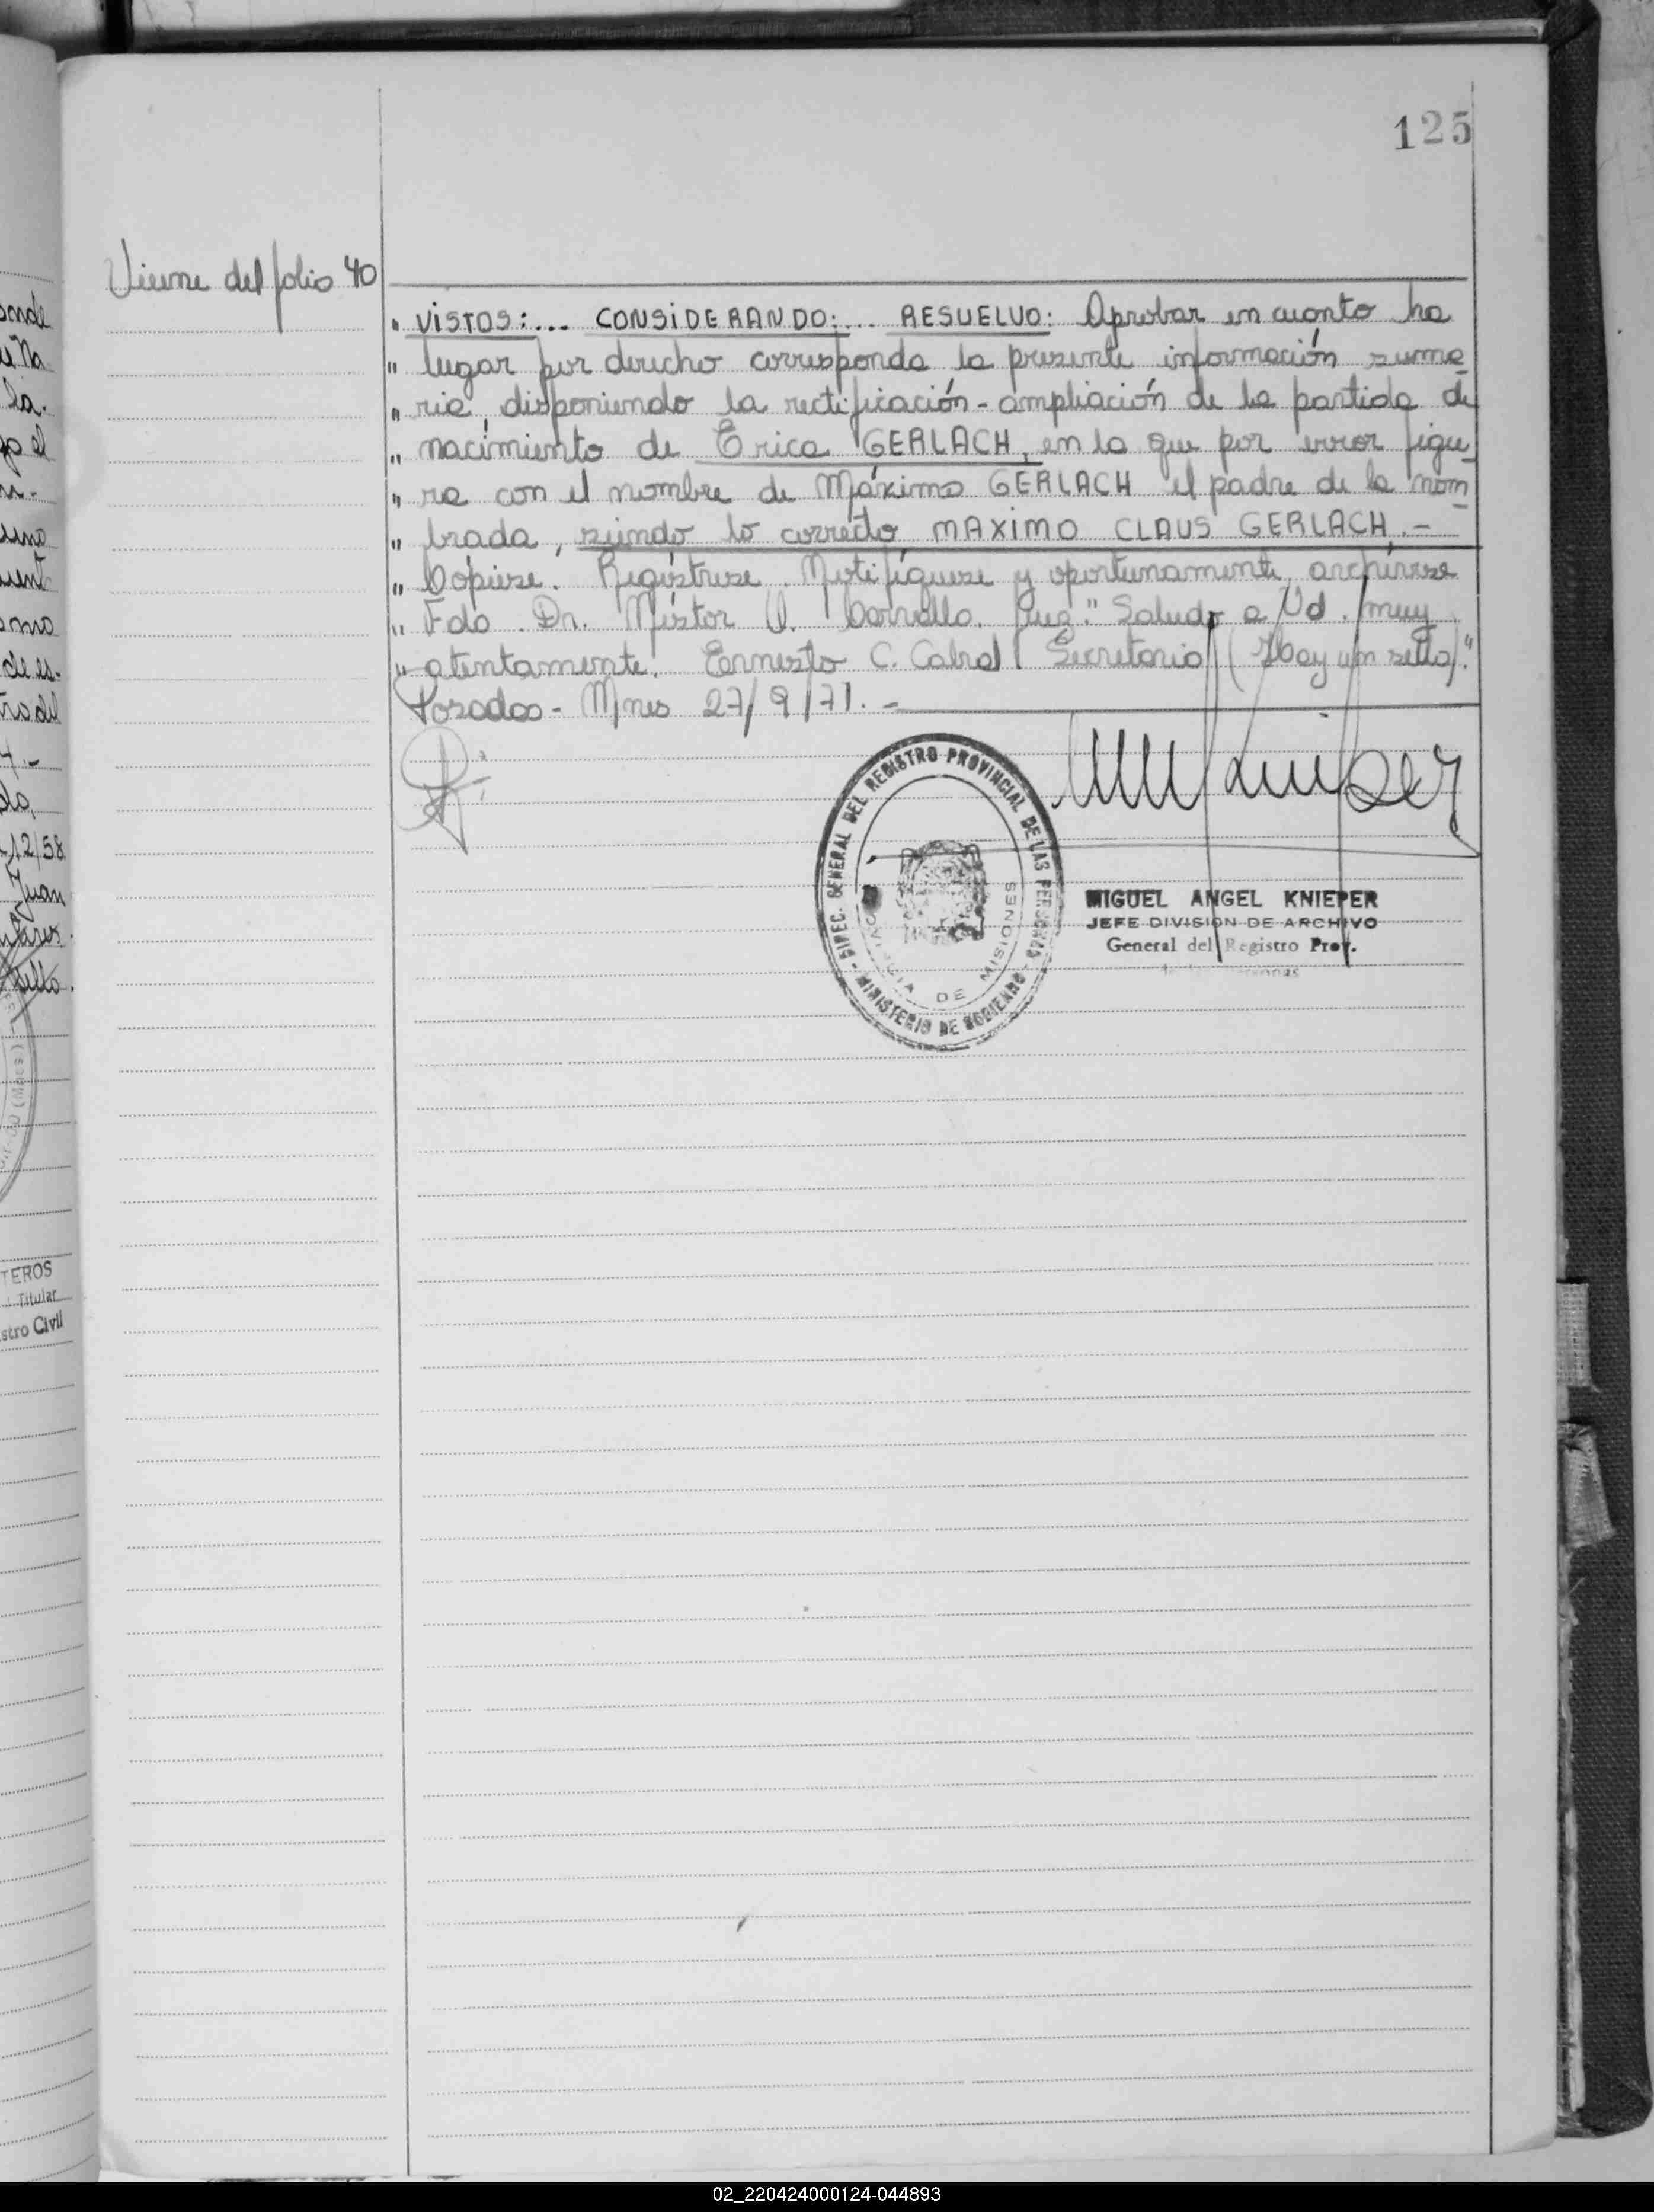 125
Viene del folio 40
" VISTOS:... CONSIDERANDO:... RESUELVO: Aprobar en cuanto ha
" lugar por derecho corresponda la presente información suma
" ria, disponiendo la rectificación-ampliación de la partida de
" nacimiento de Erica GERLACH, en la que por error figu
" ra con el nombre de Máximo GERLACH el padre de la nom
" brada, siendo lo correcto MAXIMO CLAUS GERLACH.-
" Cópiese. Regístrese. Notifíquese y oportunamente, archívese
" Fdo. Dr. Néstor Carvallo. Juez." Saludo a Ud. muy
" atentamente. Ernesto C. Cabral Secretario (Hay un sello)."
Posadas - Mnes 27/9/71. -
DIREC. GENERAL DEL REGISTRO PROVINCIAL DE LAS PERSONAS
PROVINCIA DE MISIONES
- MINISTERIO DE GOBIERNO -
MIGUEL ANGEL KNIEPER
JEFE DIVISION DE ARCHIVO
General del Registro Prov.
de las Personas
onde
la.
12/58
Juan
sello.
(Mnes)
TEROS
Titular
stro Civil
02_220424000124-044893